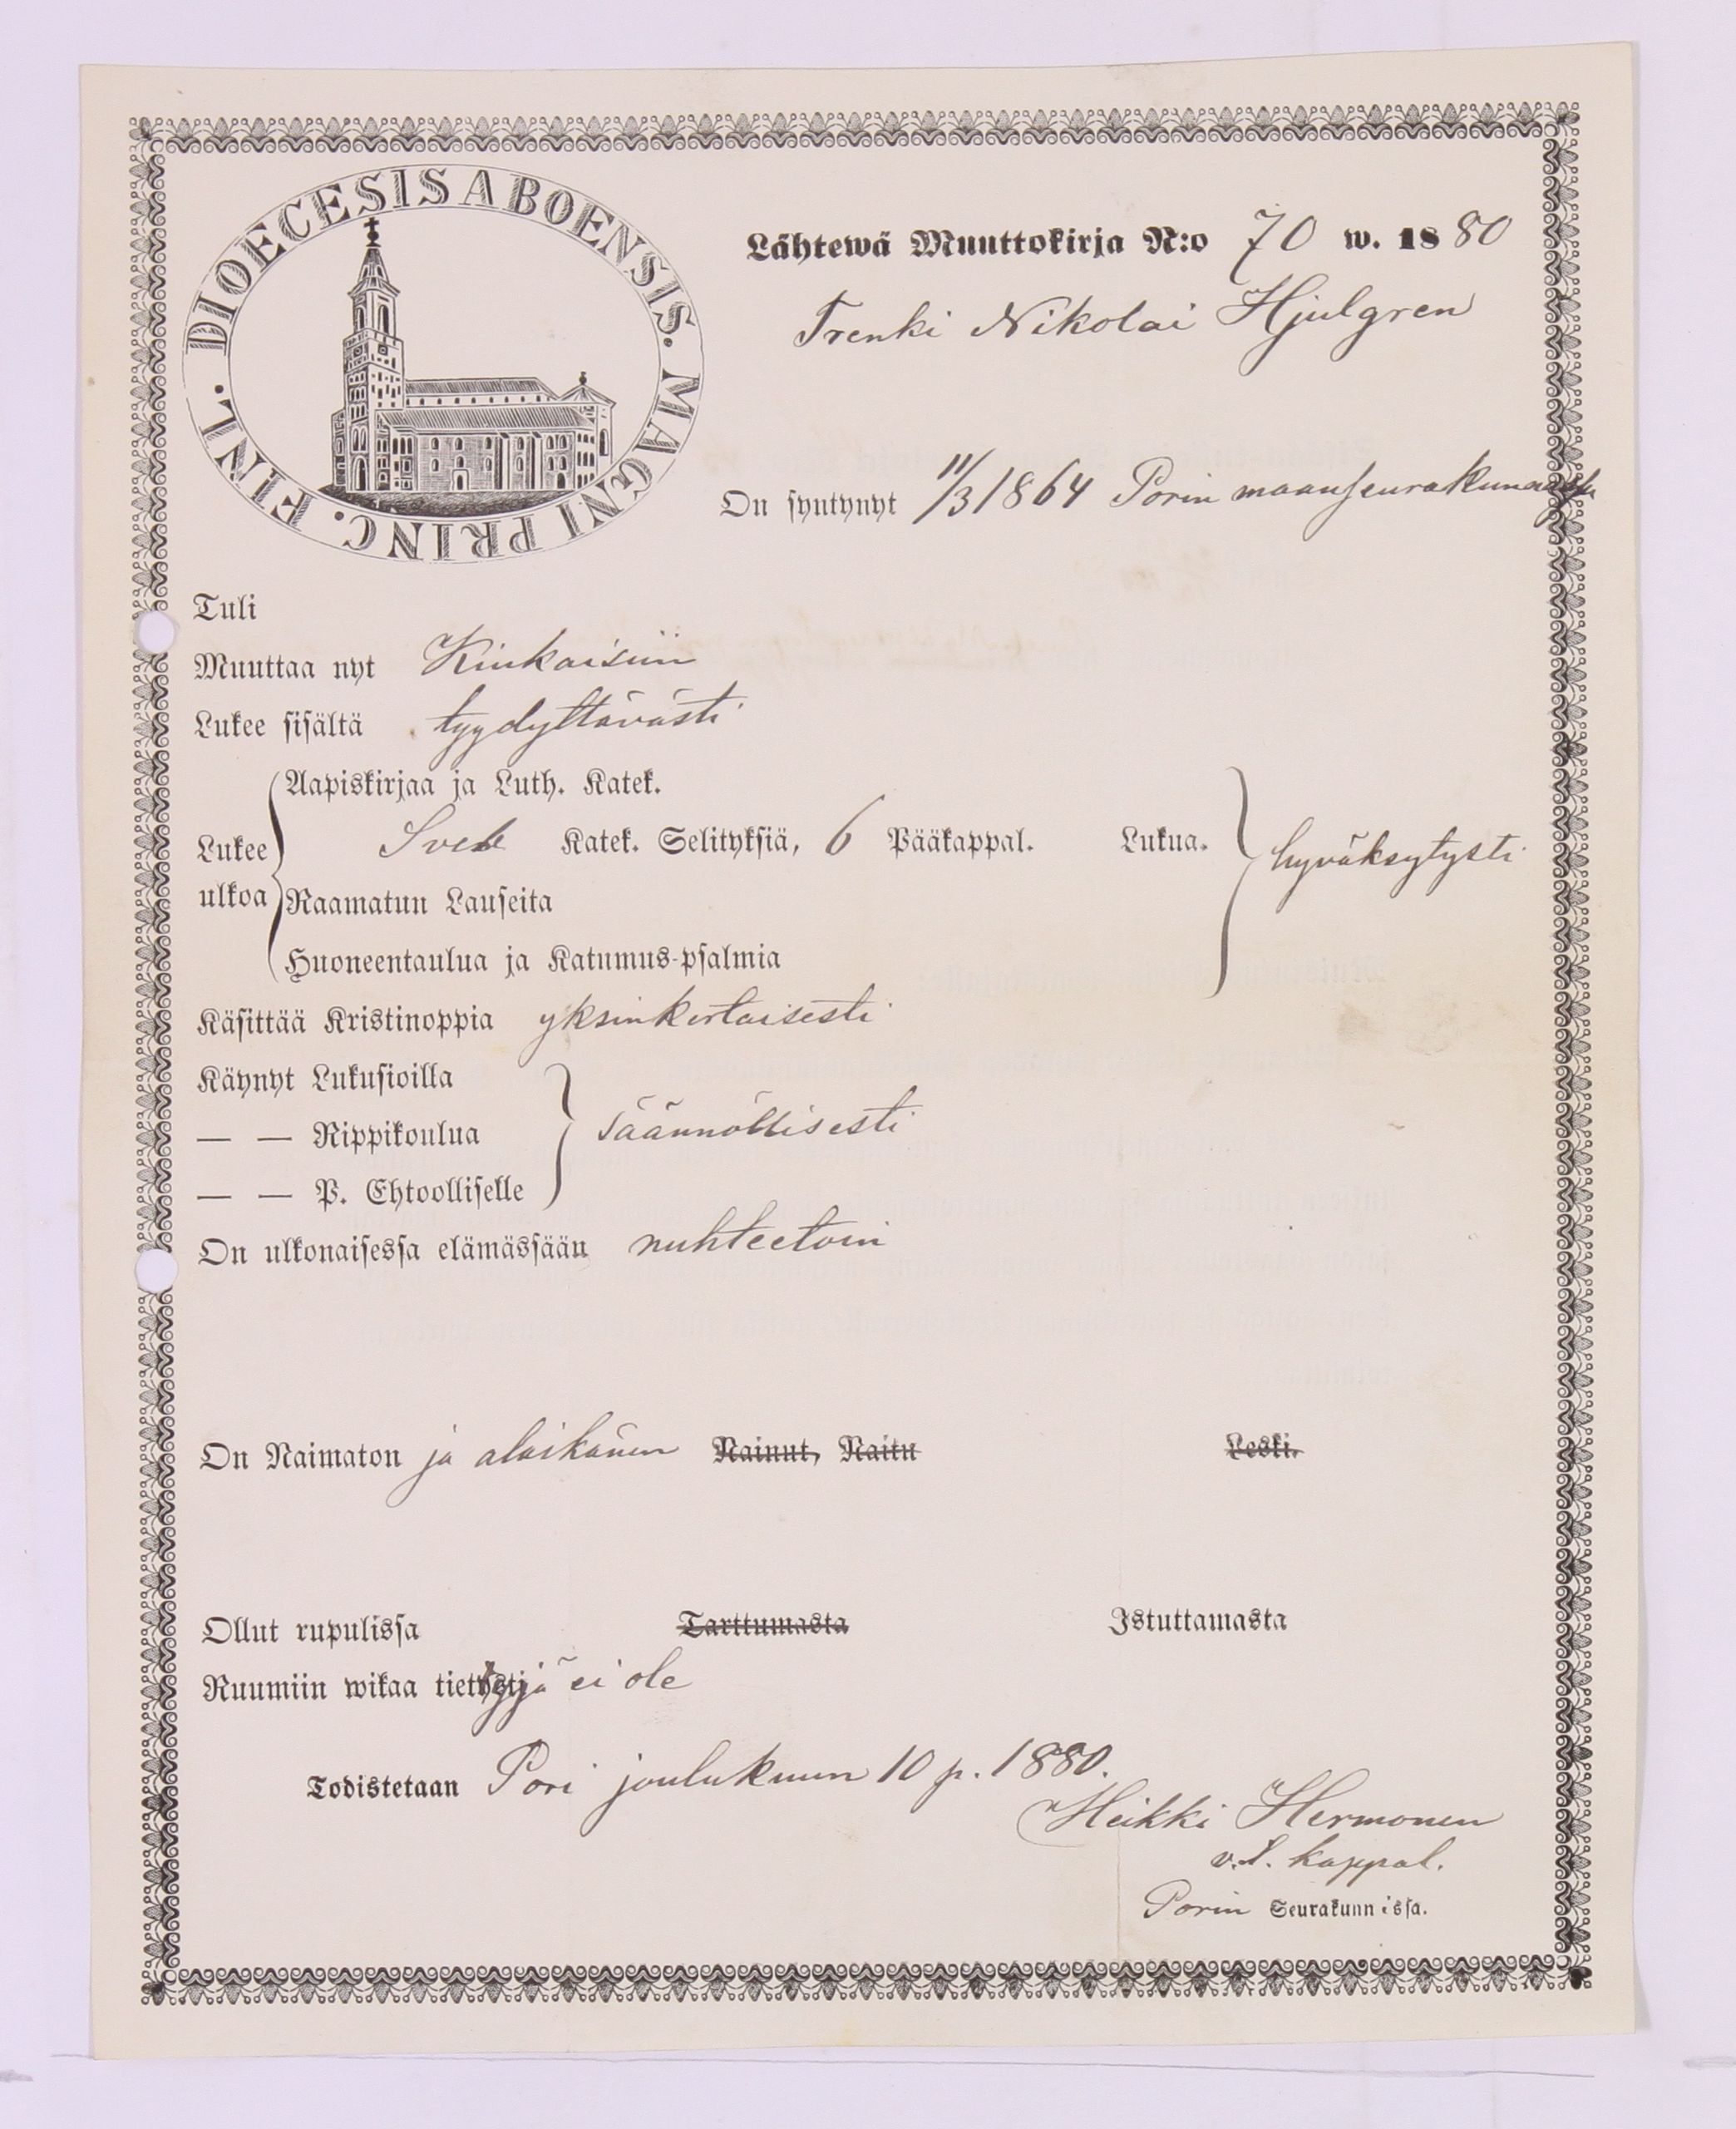 DIOECESIS ABOENSIS. MAGNI PRINC. FINL.
Lähtewä Muuttokirja N:o 70 w. 1880
Trenki Nikolai Hjulgren
On syntynyt 11/3 1864 Porin maaseurakunnassa
Tuli
Muuttaa nyt Kiukaisiin
Lukee sisältä tyydyttävästi
Aapiskirjaa ja Luth. Katek.
Lukee ulkoa Sveb Katek. Selityksiä, 6 Pääkappal. Lukua. hyväksytysti
Raamatun Lauseita
Huoneentaulua ja Katumus-psalmia
Käsittää Kristinoppia yksinkertaisesti
Käynyt Lukusioilla
— — Rippikoulua säännöllisesti
— — P. Ehtoolliselle
On ulkonaisessa elämässään nuhteetoin
On Naimaton ja alaikäinen Nainut, Naitu Leski.
Ollut rupulissa Tarttumasta Istuttamasta
Ruumiin wikaa tiettyjä ei ole
Todistetaan Pori joulukuun 10 p. 1880.
Heikki Hermonen
v.t. kappal.
Porin Seurakunnissa.